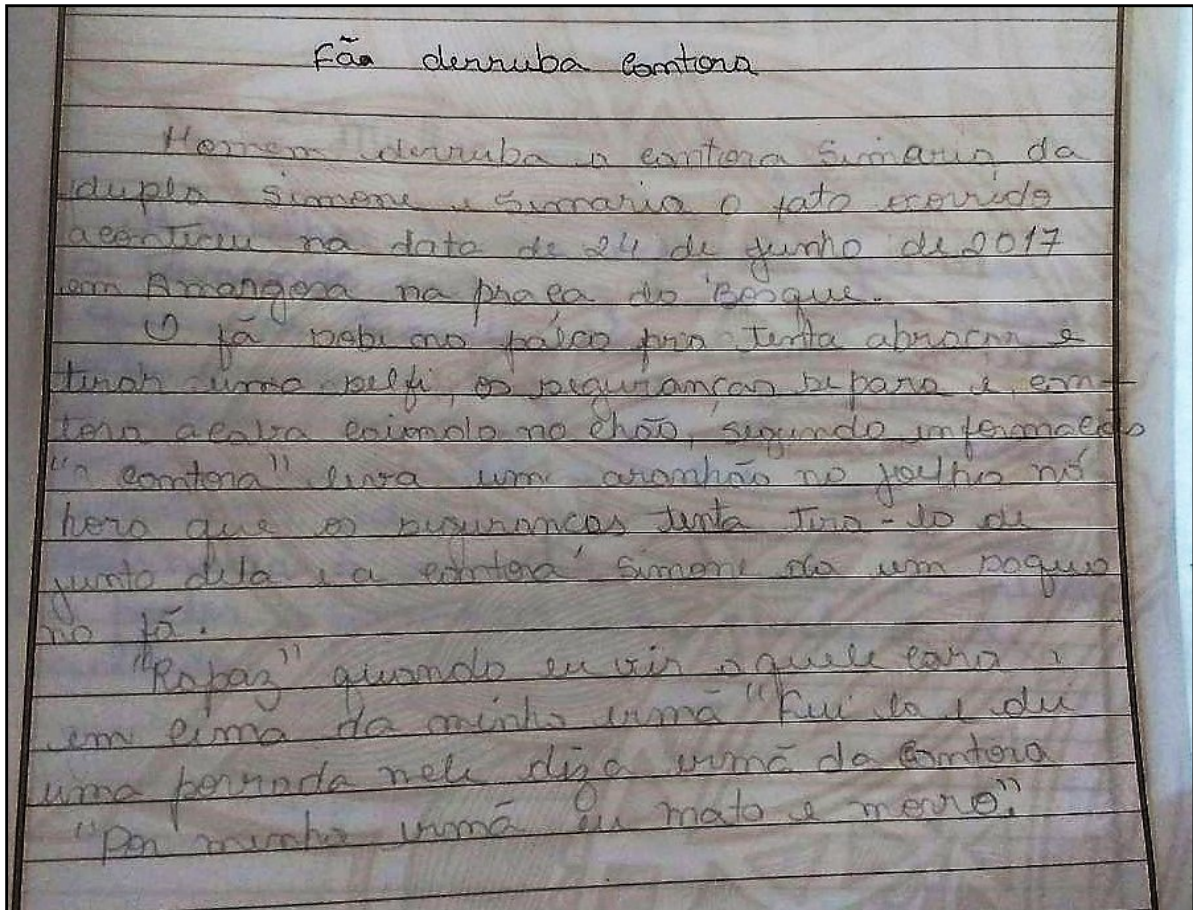 Fão derruba comtora
Homem derruba a cantora Simaria da
dupla Simone e Simaria o fato ocorrido
aconticeu na data de 24 de junho de 2017
em Amargosa na praça do Bosque.
O fã sobi no palco pra tenta abraçar e
tirar uma selfi, os seguranças separa e, com-
tora acaba caiondo no chão, segundo informação
"a comtora" leva um aranhão no joelho na
hora que os siguranças tenta tira-lo de
junto dela e a comtora Simone da um soquo
no fã.
"Rapaz" quando eu vir aquele cara i
em cima da minha irmã "Fui la e dei
uma porrada nele diz a irmã da comtora
"Por minha irmã eu mato e morro".